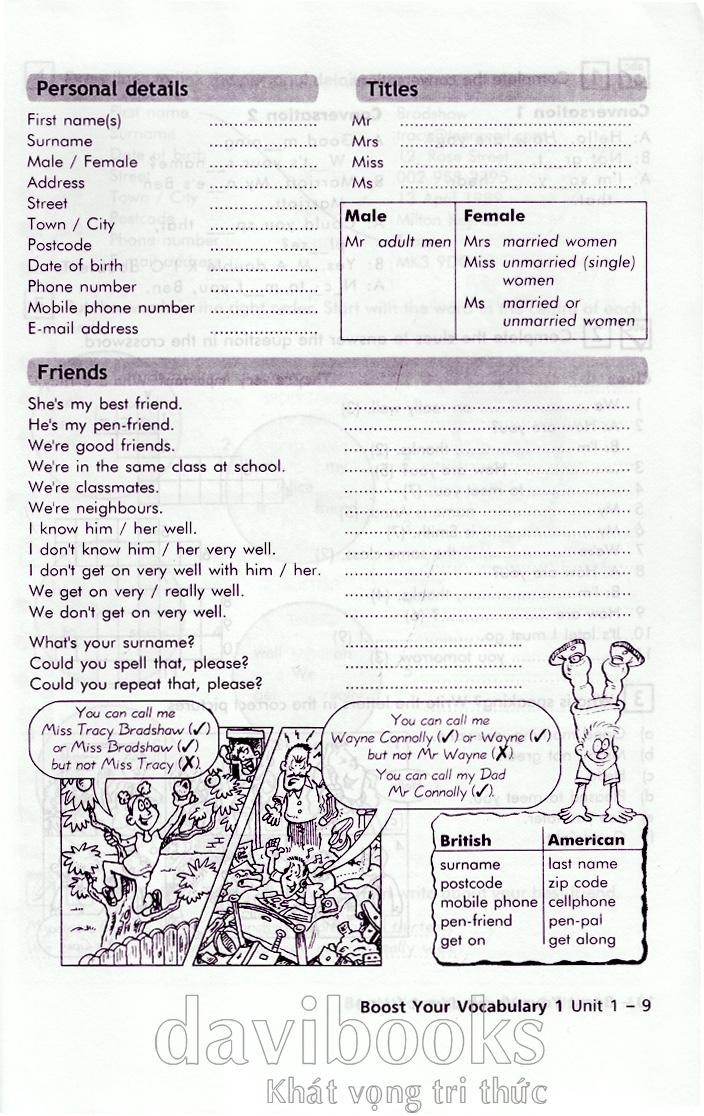 Personal details
First name(s) ....................
Surname ....................
Male / Female ....................
Address ....................
Street ....................
Town / City ....................
Postcode ....................
Date of birth ....................
Phone number ....................
Mobile phone number ....................
E-mail address ....................
Titles
Mr ....................
Mrs ....................
Miss ....................
Ms ....................
Male Female
Mr adult men Mrs married women
Miss unmarried (single)
women
Ms married or
unmarried women
Friends
She's my best friend. ....................
He's my pen-friend. ....................
We're good friends. ....................
We're in the same class at school. ....................
We're classmates. ....................
We're neighbours. ....................
I know him / her well. ....................
I don't know him / her very well. ....................
I don't get on very well with him / her. ....................
We get on very / really well. ....................
We don't get on very well. ....................
What's your surname? ....................
Could you spell that, please? ....................
Could you repeat that, please? ....................
You can call me
Miss Tracy Bradshaw (✓)
or Miss Bradshaw (✓)
but not Miss Tracy (✗).
You can call me
Wayne Connolly (✓) or Wayne (✓)
but not Mr Wayne (✗).
You can call my Dad
Mr Connolly (✓).
British American
surname last name
postcode zip code
mobile phone cellphone
pen-friend pen-pal
get on get along
Boost Your Vocabulary 1 Unit 1 – 9
davibooks
Khát vọng tri thức